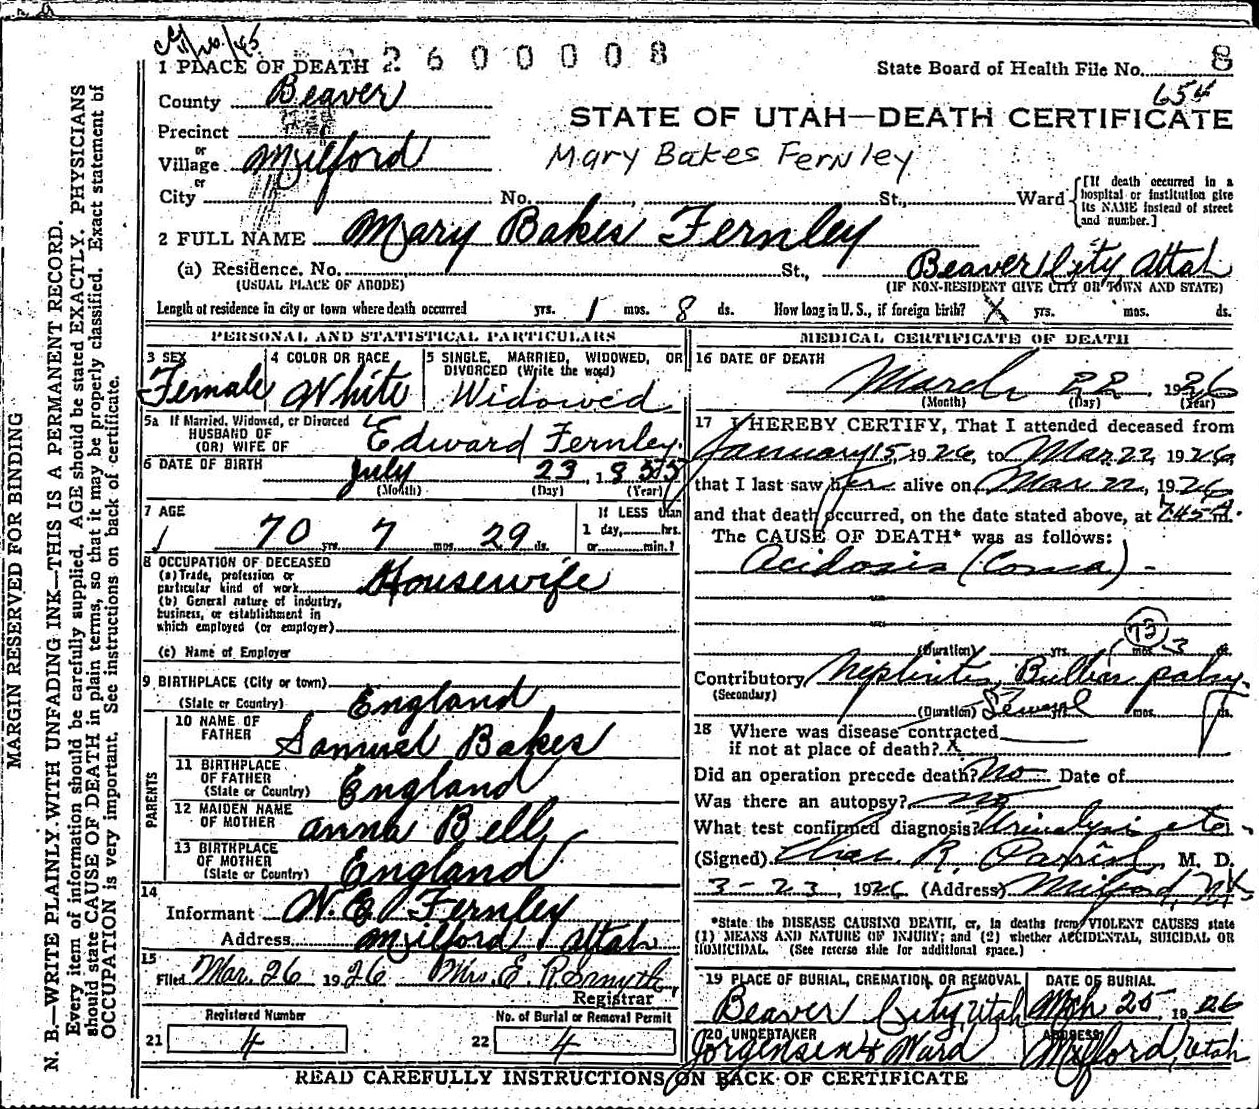 2600008
1 PLACE OF DEATH
State Board of Health File No. 8
654
County Beaver
STATE OF UTAH—DEATH CERTIFICATE
Precinct
or
Village Milford
Mary Bakes Fernley
or
City No. , St., Ward
[If death occurred in a hospital or institution give its NAME instead of street and number.]
2 FULL NAME Mary Bakes Fernley
(a) Residence. No. St., Beaver City, Utah
(USUAL PLACE OF ABODE) (IF NON-RESIDENT GIVE CITY OR TOWN AND STATE)
Length of residence in city or town where death occurred yrs. 1 mos. 8 ds. How long in U. S., if foreign birth? X yrs. mos. ds.
PERSONAL AND STATISTICAL PARTICULARS
3 SEX 4 COLOR OR RACE 5 SINGLE, MARRIED, WIDOWED, OR
DIVORCED (Write the word)
Female White Widowed
5a If Married, Widowed, or Divorced
HUSBAND OF
(OR) WIFE OF Edward Fernley.
6 DATE OF BIRTH July 23, 1855
(Month) (Day) (Year)
7 AGE If LESS than
1 day, hrs.
70 yrs. 7 mos. 29 ds. or min.?
8 OCCUPATION OF DECEASED
(a) Trade, profession or
particular kind of work Housewife
(b) General nature of industry,
business, or establishment in
which employed (or employer)
(c) Name of Employer
9 BIRTHPLACE (City or town)
(State or Country) England
PARENTS
10 NAME OF
FATHER Samuel Bakes
11 BIRTHPLACE
OF FATHER
(State or Country) England
12 MAIDEN NAME
OF MOTHER Anna Bell
13 BIRTHPLACE
OF MOTHER
(State or Country) England
14
Informant W. E. Fernley
Address Milford Utah
15
Filed Mar. 26 1926 Mrs. E. R. Smyth,
Registrar
Registered Number No. of Burial or Removal Permit
21 4 22 4
MEDICAL CERTIFICATE OF DEATH
16 DATE OF DEATH
March 22 1926
(Month) (Day) (Year)
17 I HEREBY CERTIFY, That I attended deceased from
January 15, 1926, to Mar 22, 1926,
that I last saw her alive on Mar 22, 1926
and that death occurred, on the date stated above, at 7.45 A. m.
The CAUSE OF DEATH* was as follows:
Acidosis (Coma) -
73
(Duration) yrs. mos. 3 ds.
Contributory Nephritis, Bulbar palsy.
(Secondary)
(Duration) Several mos. ds.
18 Where was disease contracted
if not at place of death? X
Did an operation precede death? No Date of
Was there an autopsy? no
What test confirmed diagnosis? Urinalysis etc.
(Signed) Chas. R. Parrish, M. D.
3-23, 1926 (Address) Milford, Ut.
*State the DISEASE CAUSING DEATH, or, in deaths from VIOLENT CAUSES state
(1) MEANS AND NATURE OF INJURY; and (2) whether ACCIDENTAL, SUICIDAL OR
HOMICIDAL. (See reverse side for additional space.)
19 PLACE OF BURIAL, CREMATION, OR REMOVAL DATE OF BURIAL
Beaver City, Utah Mch 25, 1926
20 UNDERTAKER ADDRESS
Jorgensen & Ward Milford, Utah
READ CAREFULLY INSTRUCTIONS ON BACK OF CERTIFICATE
MARGIN RESERVED FOR BINDING
N. B.—WRITE PLAINLY WITH UNFADING INK—THIS IS A PERMANENT RECORD.
Every item of information should be carefully supplied. AGE should be stated EXACTLY. PHYSICIANS
should state CAUSE OF DEATH in plain terms, so that it may be properly classified. Exact statement of
OCCUPATION is very important. See instructions on back of certificate.